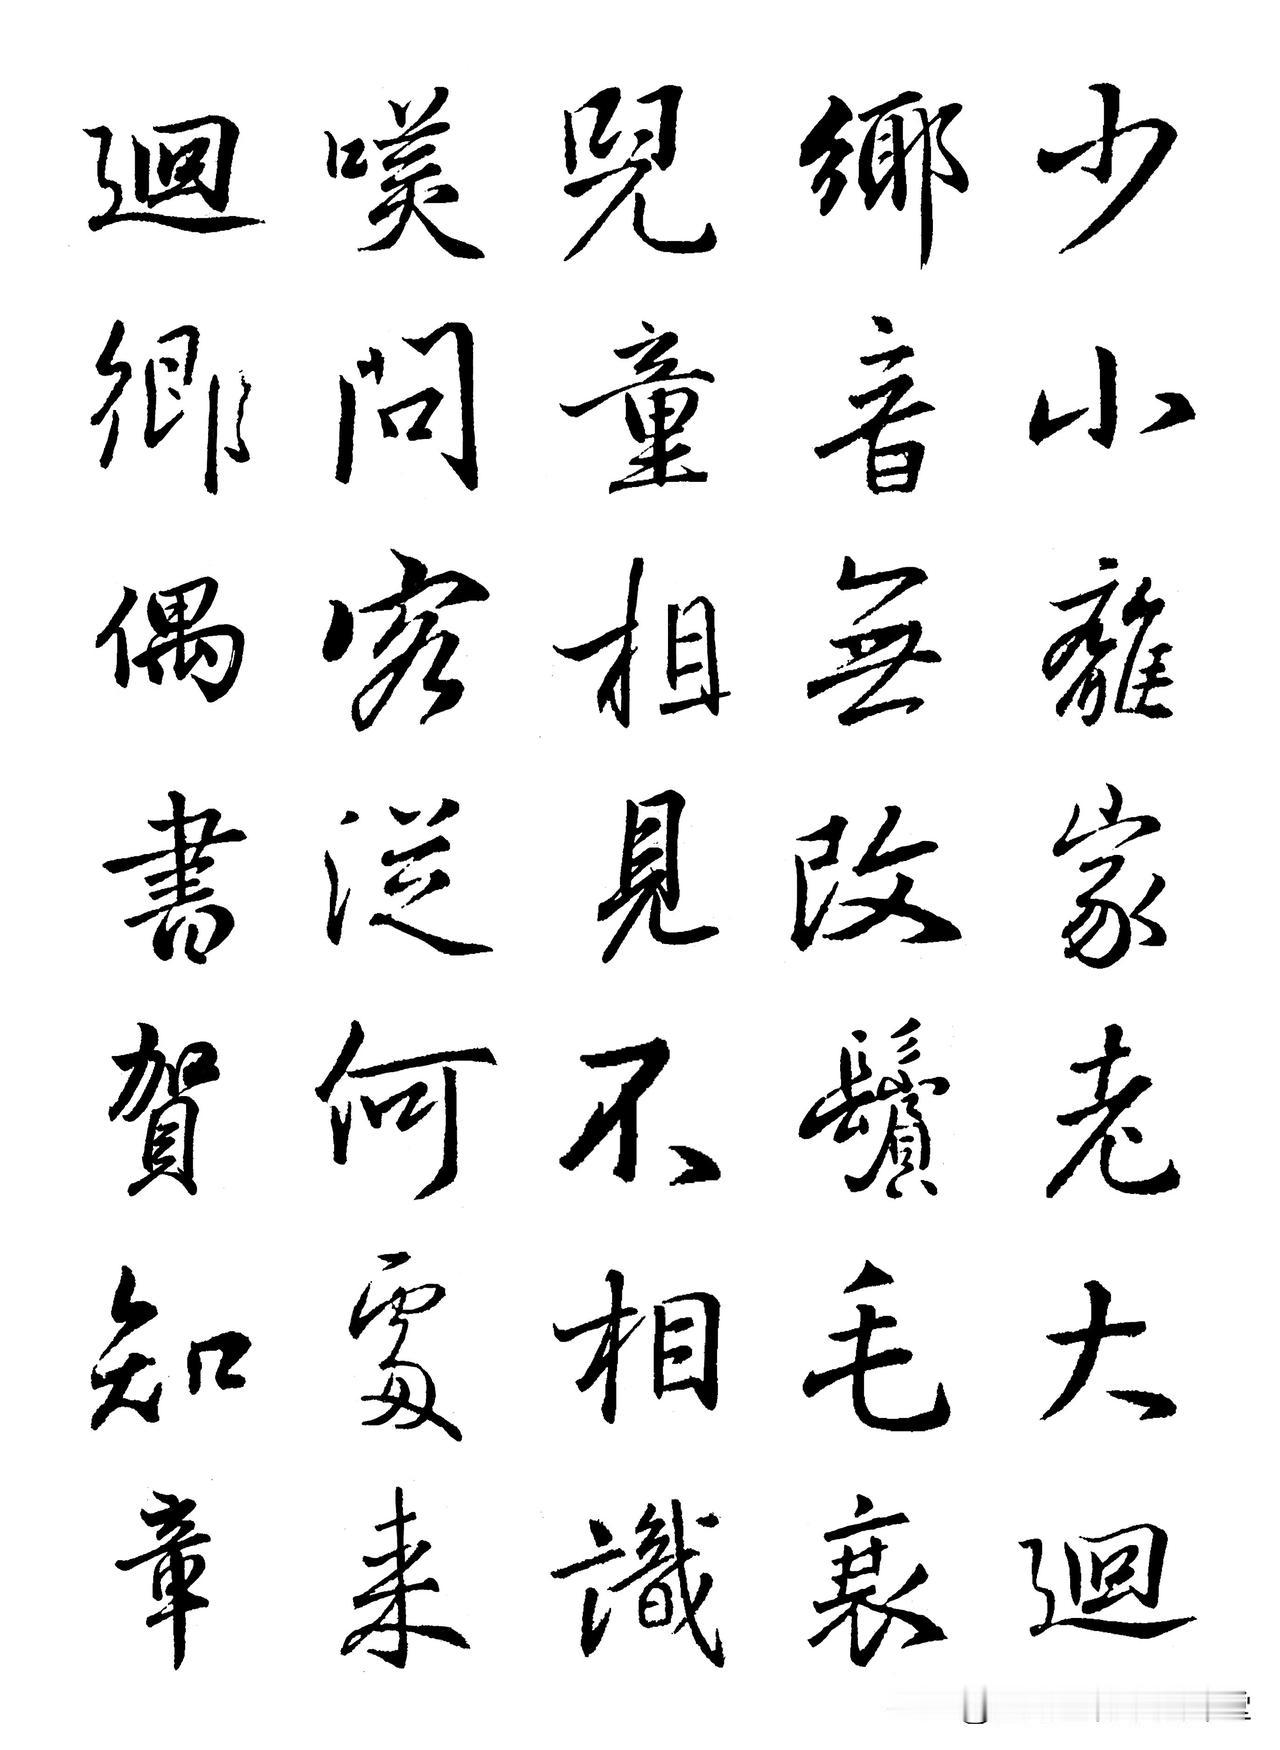 少小離家老大迴
鄉音無改鬢毛衰
兒童相見不相識
咲問客從何處来
迴鄉偶書賀知章